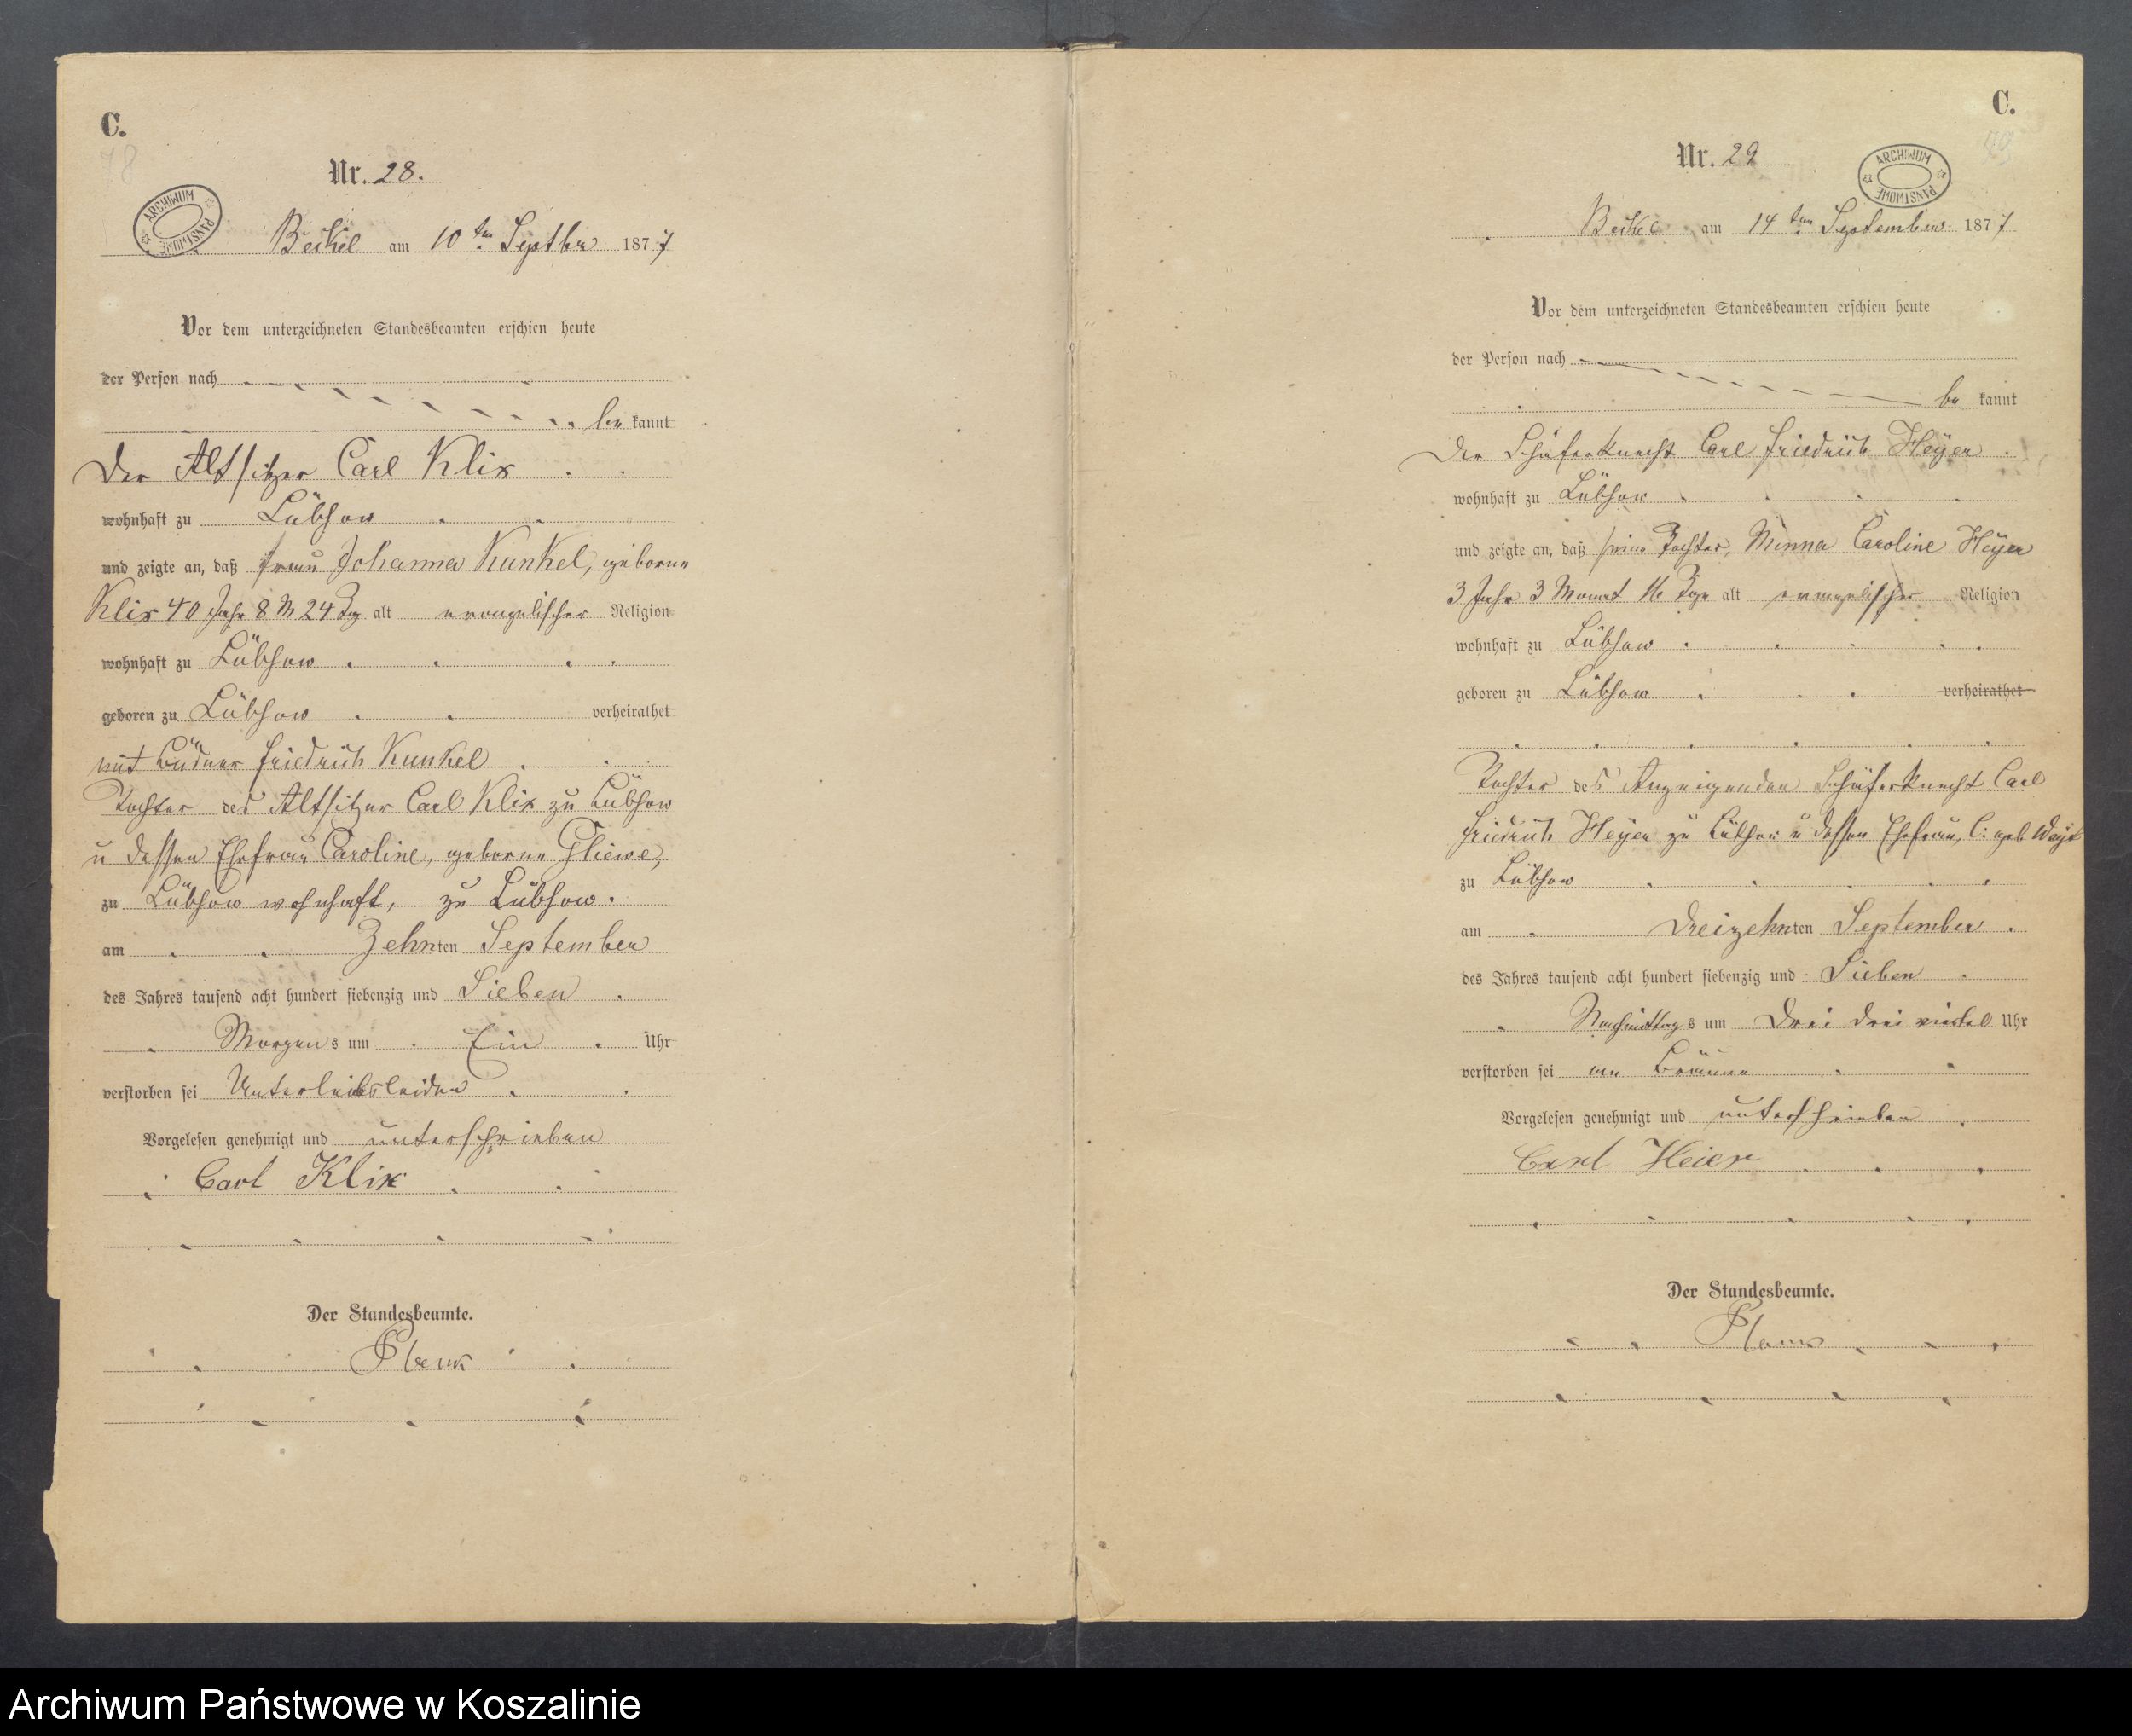 C.
78
Nr. 28.
ARCHIWUM PAŃSTWOWE
Beckel am 10 ten Septbr 1877
Vor dem unterzeichneten Standesbeamten erschien heute
der Person nach
be kannt
Der Altsitzer Carl Klix
wohnhaft zu Lübsow
und zeigte an, daß Frau Johanna Kunkel, geborne
Klix 40 Jahr 8 M 24 Tg alt evangelischer Religion
wohnhaft zu Lübsow
geboren zu Lübsow verheirathet
mit Büdner Friedrich Kunkel
Tochter des Altsitzer Carl Klix zu Lübsow
u dessen Ehefrau Caroline, geborne Gliewe,
zu Lübsow wohnhaft, zu Lübsow.
am Zehnten September
des Jahres tausend acht hundert siebenzig und Sieben
Morgens um Ein Uhr
verstorben sei Unterleibsleiden
Vorgelesen genehmigt und unterschrieben
Carl Klix
Der Standesbeamte.
C.
Nr. 29
ARCHIWUM PAŃSTWOWE
am 14 ten September 1877
Vor dem unterzeichneten Standesbeamten erschien heute
der Person nach
be kannt
Der Schäferknecht Carl Friedrich Heyer
wohnhaft zu Lübsow
und zeigte an, daß seine Tochter, Minna Caroline Heyer
3 Jahr 3 Monat 16 Tage alt evangelischer Religion
wohnhaft zu Lübsow
geboren zu Lübsow verheirathet
Tochter des Anzeigenden Schäferknecht Carl
Friedrich Heyer zu Lübsow u dessen Ehefrau, C: geb
zu Lübsow
am Dreizehnten September
des Jahres tausend acht hundert siebenzig und Sieben
Nachmittags um Drei drei viertel Uhr
verstorben sei an Bräune
Vorgelesen genehmigt und unterschrieben
Carl Heier
Der Standesbeamte.
Archiwum Państwowe w Koszalinie